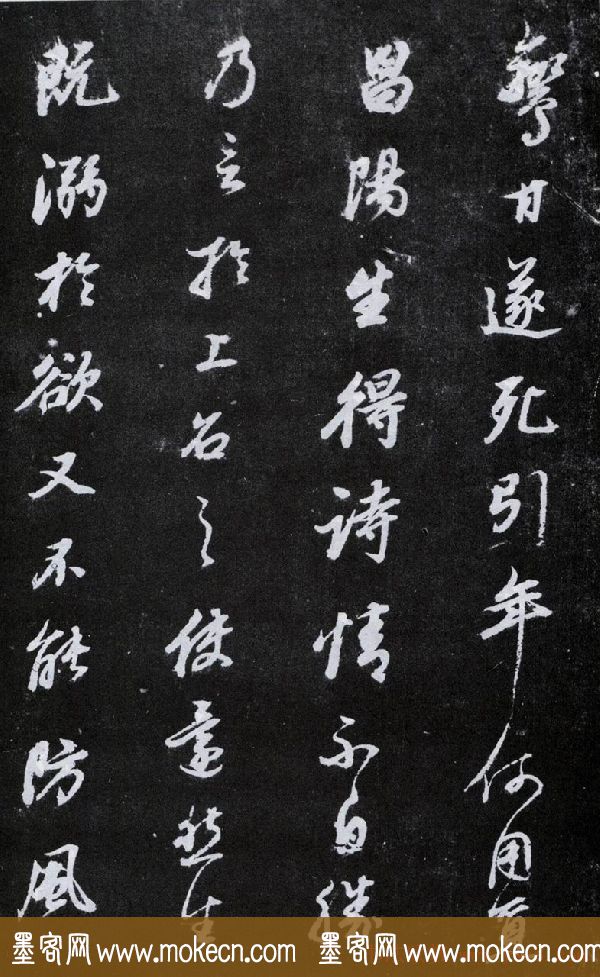 鸞甘遂死引年何用
昌陽生得詩情不自勝
乃言於上名之使還然生
既溺於欲又不能防風
墨客网 www.mokecn.com 墨客网 www.mokecn.com